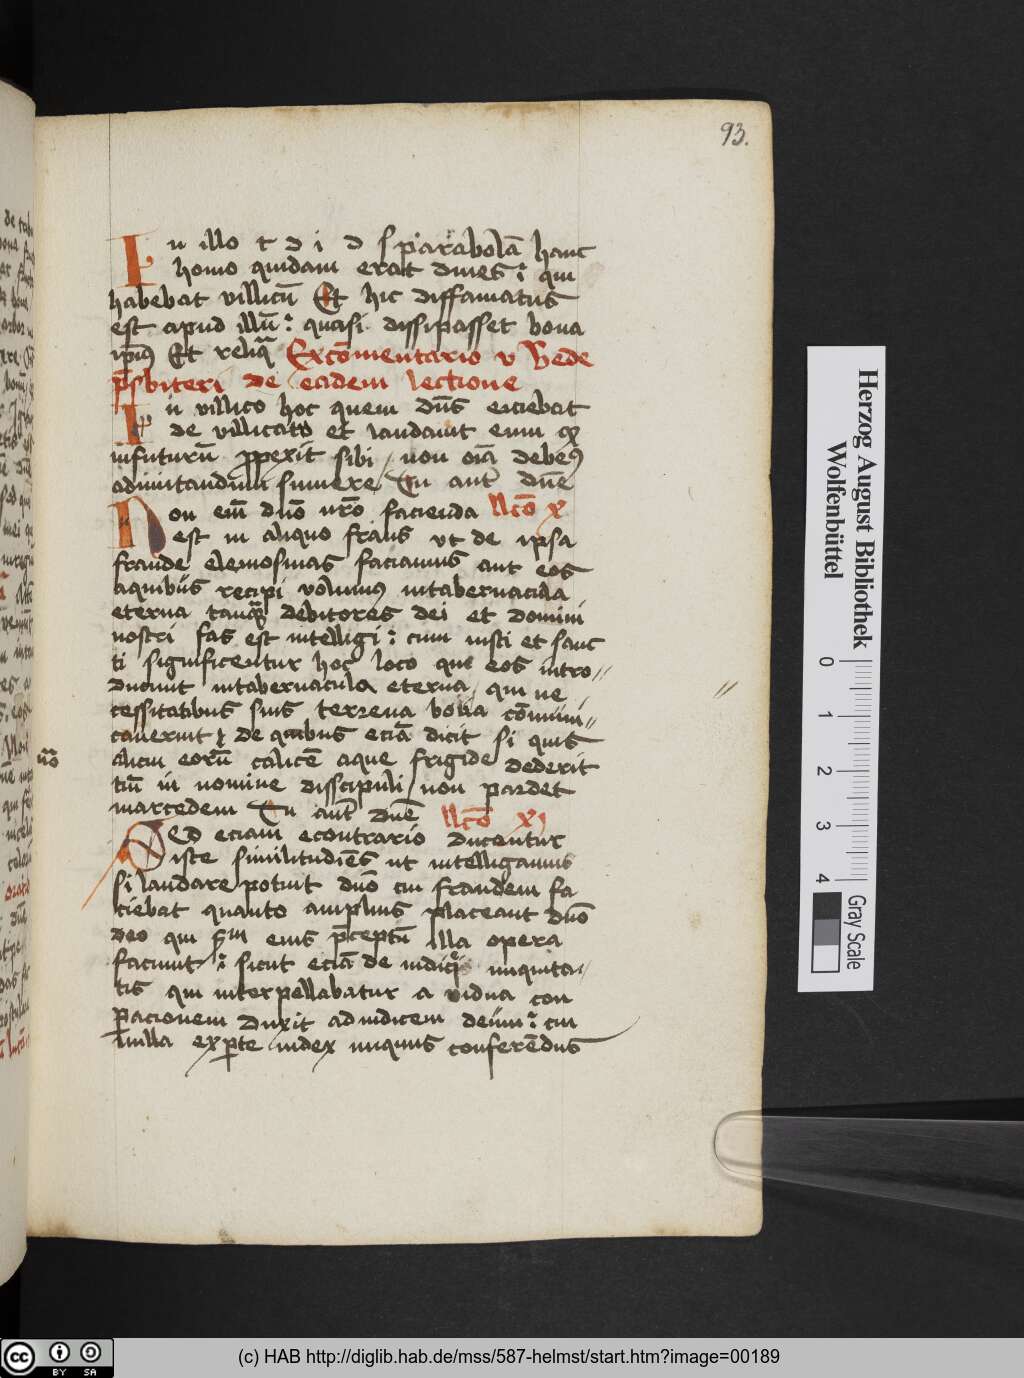 93.
In illo t d i d s parabolā hanc
homo quidam erat diues : qui
habebat villicū Et hic diffamatus
est apud illū : quasi dissipasset bona
ipius Et reliqa Ex cōmentario v Bede
p̄sbiteri de eadem lectione
In villico hoc quem dn̄s eiciebat
de villicato et laudauit eum
infuturū ꝓspexit sibi / non oīa debemus
adimitandum sumere Tu aut dn̄e
Non em̄ dn̄o nr̄o facienda llc̄o x
est in aliquo fraus vt de ipsa
fraude elemosinas faciamus aut eos
aquibus recipi volumus intabernacula
eterna tanq̄ debitores dei et domini
nostri fas est intelligi : cum iusti et sanc
ti significentur hoc loco qui eos intro//
ducunt intabernacula eterna / qui ne //
cessitatibus suis terrena bona cōmuni//
cauerint de quibus eciā dicit si quis
alicui eorū calicē aque frigide dederit
nō
tm̄ in nomine disscipuli / non perdet
mercedem Tu aut dn̄e llc̄o xj
Sed eciam econtrario ducentur
iste similitudiēs ut intelligamus
si laudare potuit dn̄o cui fraudem fa
ciebat quanto amplius placeant dn̄o
deo qui sm eius p̄ceptū illa opera
faciunt : sicut eciā de iudice iniquita/
tis qui interpellabatur a vidua con
paracionem duxit ad iudicem deum : cui
nulla ex parte iudex iniquus conferēdus
Herzog August Bibliothek
Wolfenbüttel
0 1 2 3 4
Gray Scale
cc BY SA
(c) HAB http://diglib.hab.de/mss/587-helmst/start.htm?image=00189